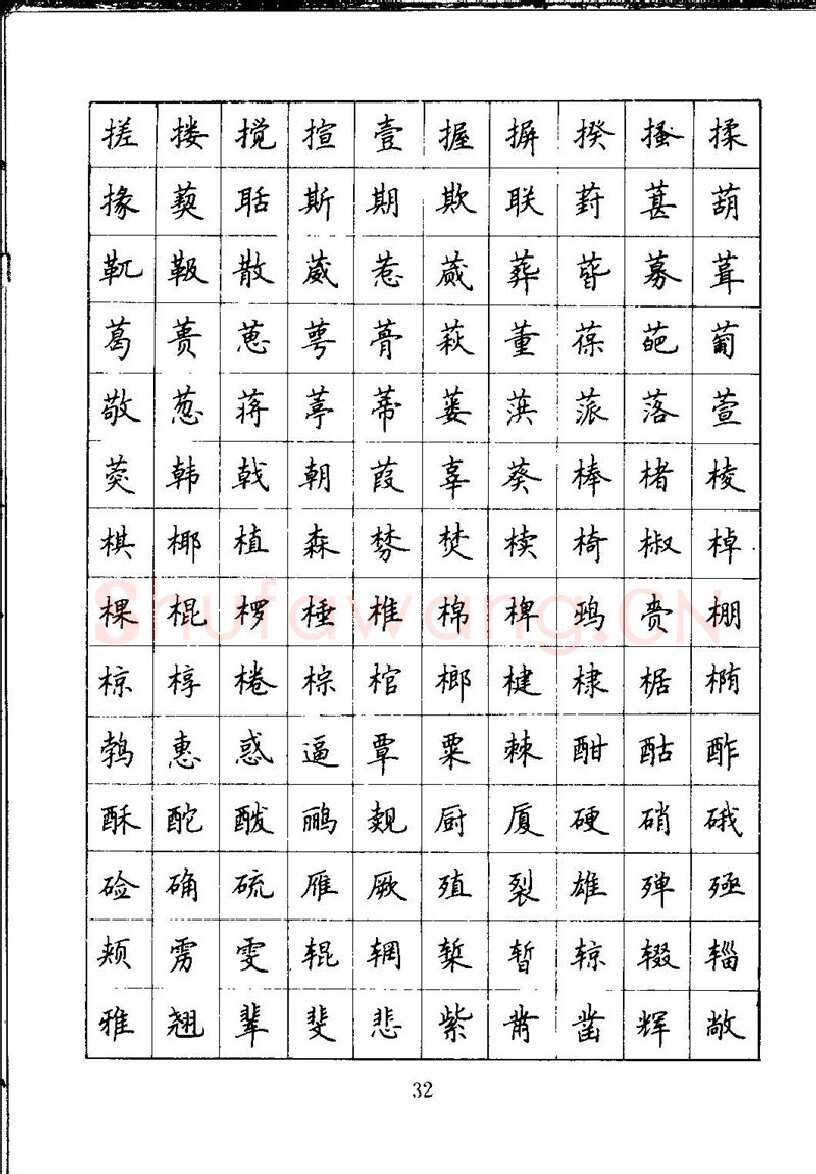 搓 搂 搅 揎 壹 握 摒 揆 搔 揉
掾 葜 聒 斯 期 欺 联 葑 葚 葫
靰 靸 散 葳 惹 蒇 葬 募 葺
葛 蒉 葸 萼 蓇 萩 董 葆 葩 葡
敬 葱 蒋 葶 蒂 蒌 蓱 蒎 落 萱
韩 戟 朝 葭 辜 葵 棒 楮 棱
棋 椰 植 森 棼 焚 椟 椅 椒 棹
棵 棍 椤 棰 椎 棉 椑 鹀 赍 棚
椋 椁 棬 棕 棺 榔 楗 棣 椐 椭
鹁 惠 惑 逼 覃 粟 棘 酣 酤 酢
酥 酡 酦 鹂 觌 厨 厦 硬 硝 硪
硷 确 硫 雁 厥 殖 裂 雄 殚 殛
颊 雳 雯 辊 辋 椠 暂 辌 辍 辎
雅 翘 辈 斐 悲 紫 凿 辉 敞
32
Shufawang.CN